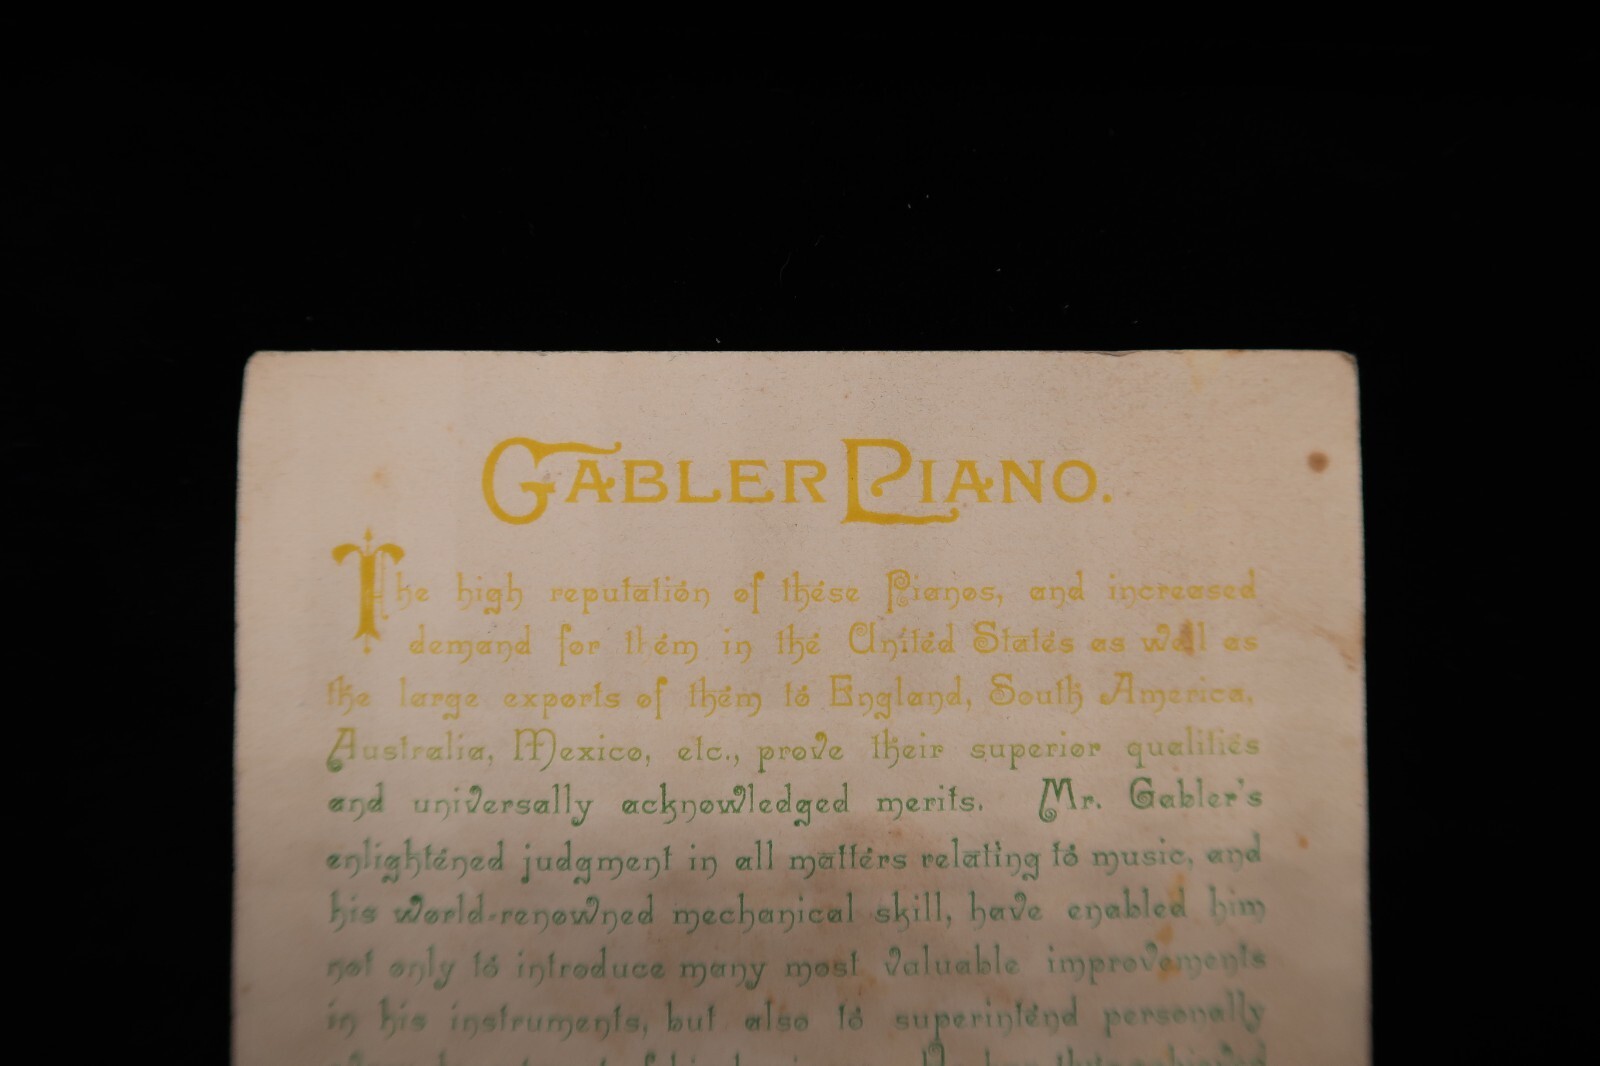 GABLER PIANO.
The high reputation of these Pianos, and increased
demand for them in the United States as well as
the large exports of them to England, South America,
Australia, Mexico, etc., prove their superior qualities
and universally acknowledged merits. Mr. Gabler's
enlightened judgment in all matters relating to music, and
his world-renowned mechanical skill, have enabled him
not only to introduce many most valuable improvements
in his instruments, but also to superintend personally